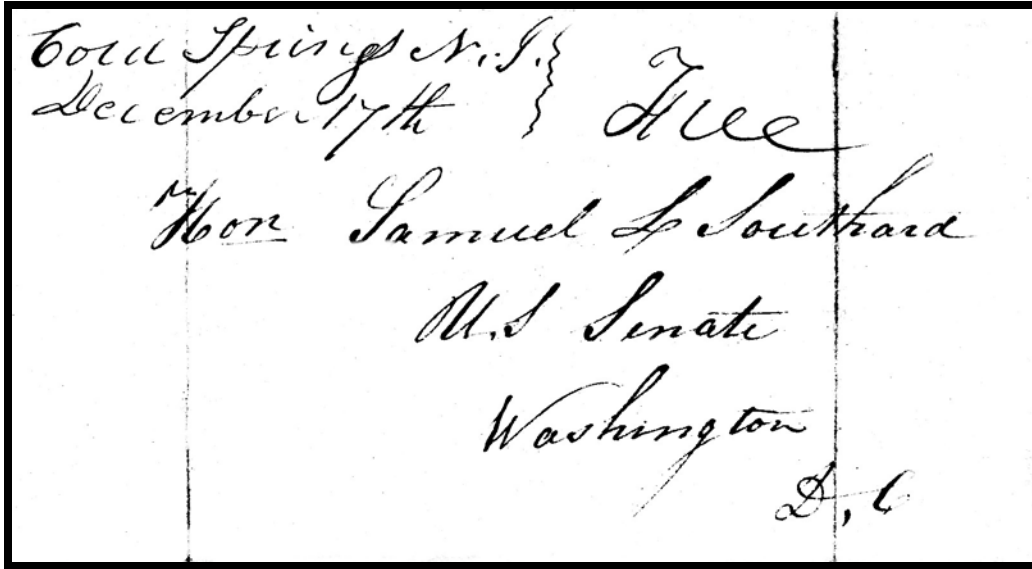 Cold Springs N.J.
December 17th
Free
Hon Samuel L Southard
U.S Senate
Washington
D, C